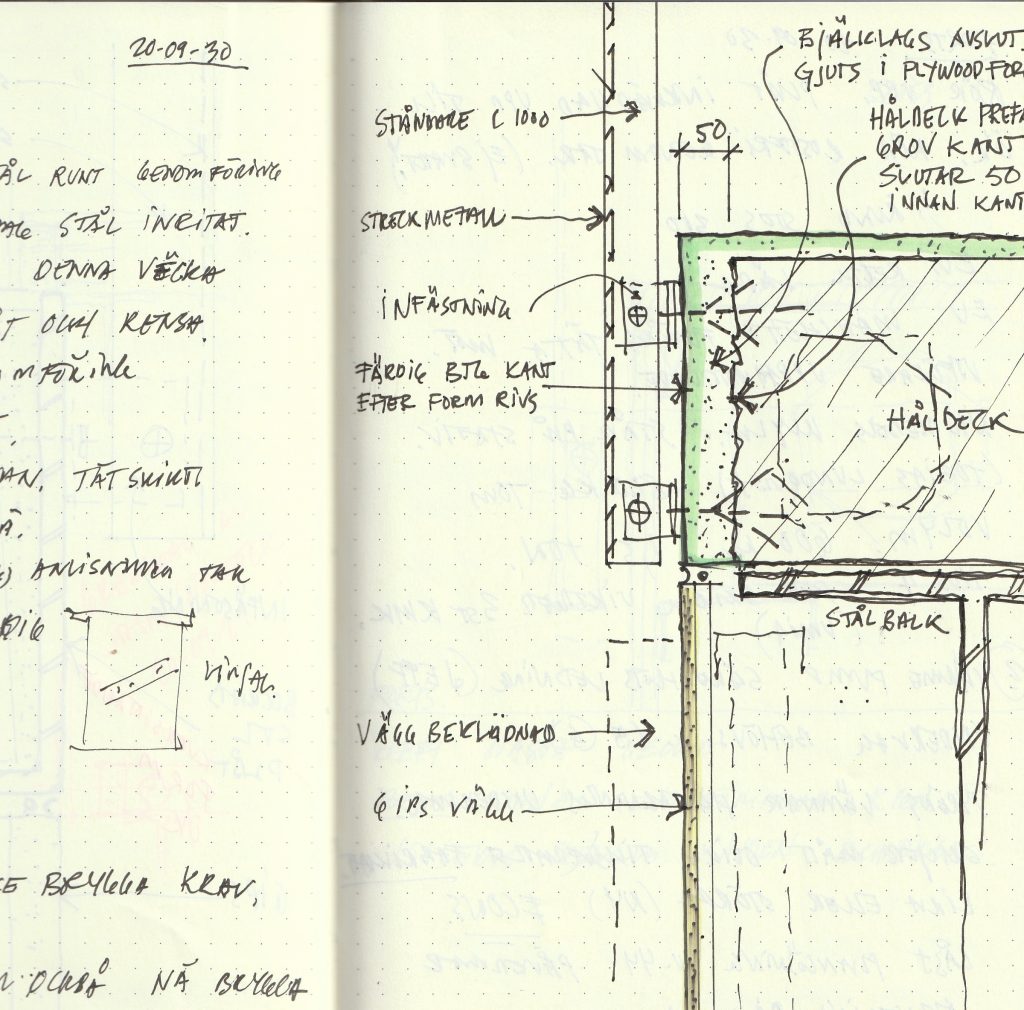 20-09-30
ÅL RUNT GENOMFÖRING
STÅL INRITAT.
DENNA VECKA
T OCH RENSA.
MFÖRING
AN. TÄTSKIKT
A.
TAK
DIG
E BRYGGA KRAV.
OCKSÅ NÅ BRYGGA
BJÄLKLAGS AVSLUT
GJUTS I PLYWOODFOR
STÅNDARE C 1000
HÅLDECK PREFA
50
GROV KANT
SLUTAR 50
INNAN KANT
STRECKMETALL
INFÄSTNING
FÄRDIG BTG KANT
EFTER FORM RIVS
HÅLDECK
STÅLBALK
VÄGGBEKLÄDNAD
GIPS VÄGG